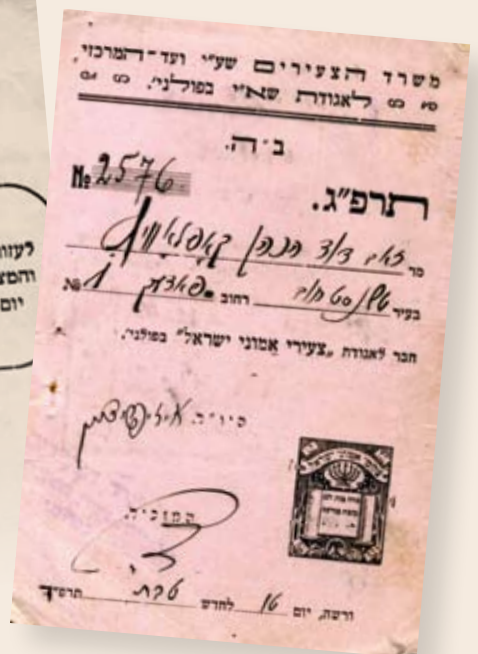 משרד הצעירים שע״י ועד־המרכזי
לאגודת שא״י בפולני׳.
ב״ה.
№ 2576
תרפ״ג.
מר זאב דוד הכהן
בעיר טשנסטחוב רחוב №1
חבר לאגודת „צעירי אמוני ישראל” בפולני׳.
היו״ר
המזכיר
ורשה, יום 16 לחדש טבת תרפ״ד
והמצ
יום